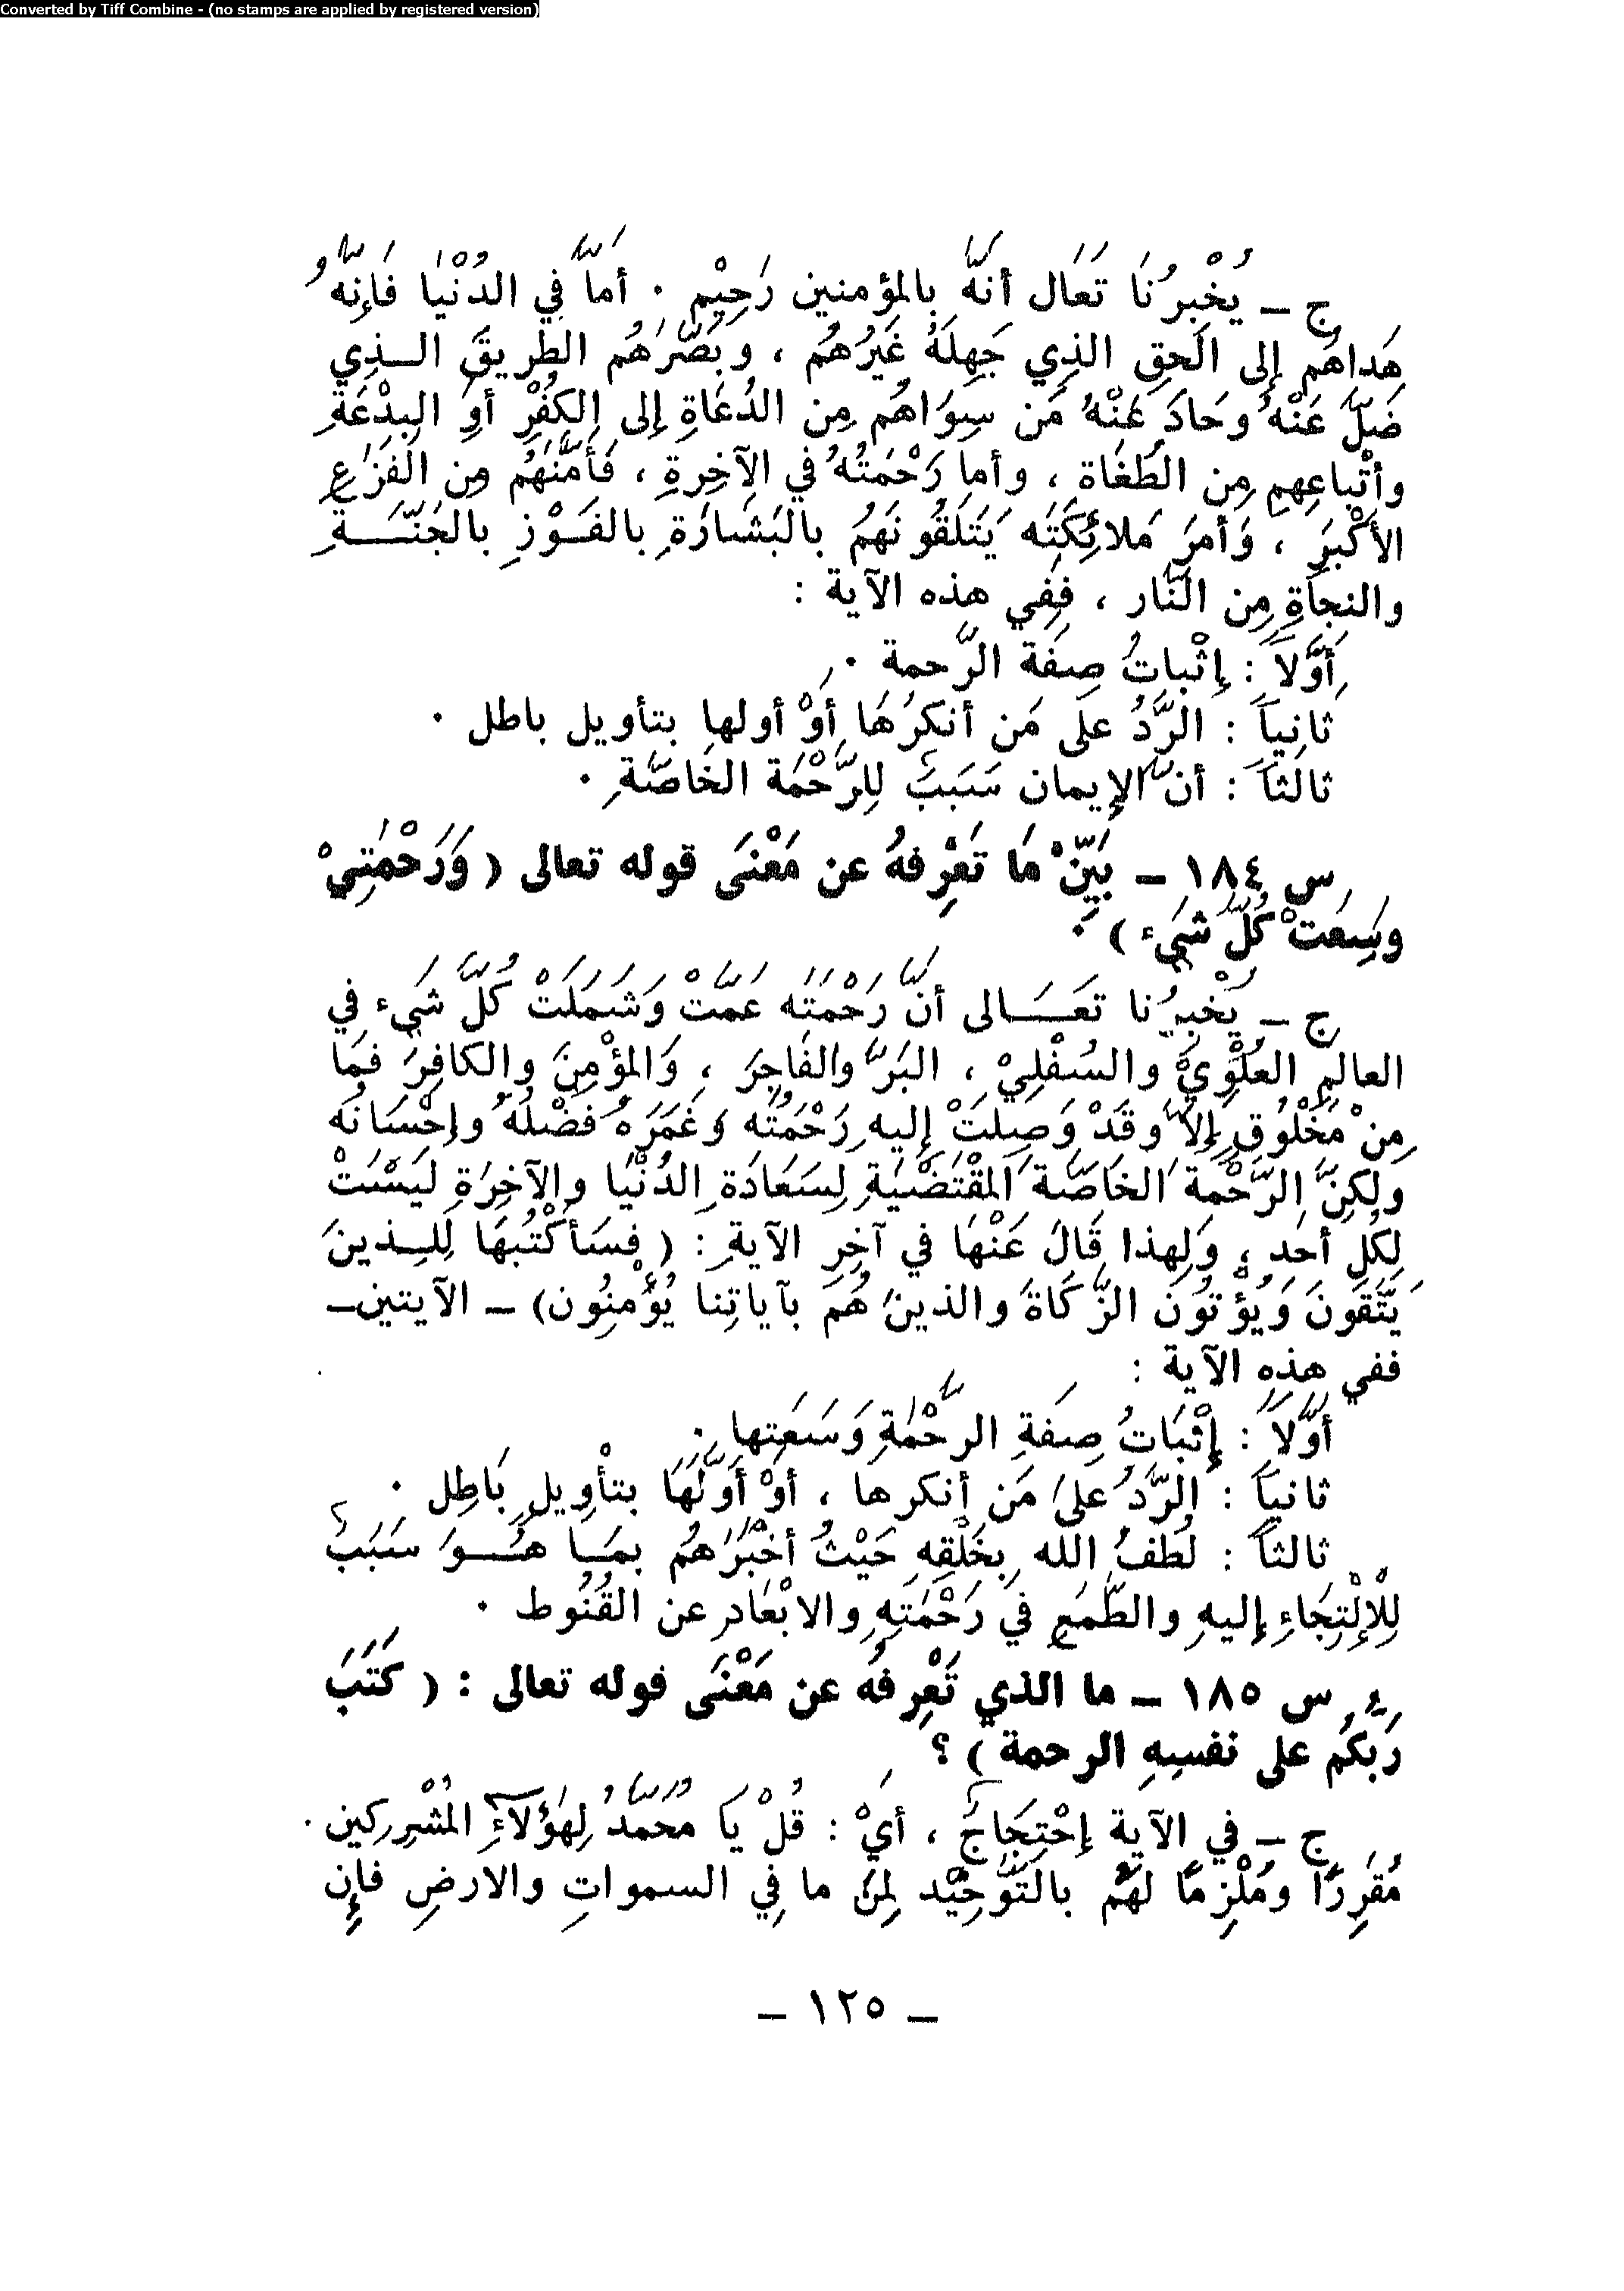 Converted by Tiff Combine - (no stamps are applied by registered version)
ج – يُخْبِرُنَا تَعَال أنهَّ بالمؤمنين رَحِيْم . أماَّ في الدُنْيَا فَإِنَّهُ
هَداهُم إلى الحَقِ الذِي جَهِلَهُ غَيْرُهُم ، وبَصَّرَهُم الطريقَ الـذِي
ضَلَّ عَنْهُ وحَادَ عَنْهُ مَن سِوَاهُم مِن الدُعَاةِ إلى الكُفْرِ أوِ البِدْعَةِ
وأتْباعِهِم مِن الطُغَاة ، وأما رَحْمَتُهُ في الآخِرةِ ، فَأَمَّنَهُم مِن الفَزَعِ
الأكْبَرِ ، وَأمَرَ مَلائِكَتَه يَتَلَقُونَهُمُ بالبَشَارَةِ بالفَـوْزِ بالجَنَّـــةِ
والنجاَةِ مِن النَّار ، فَفِي هذه الآية :
أوَّلاً : إثْباتُ صِفَة الرَّحمة .
ثانِياً : الرَّدُ علَى مَن أنكرُهَا أوْ أولها بتأويل باطل .
ثالثاً : أنَّ الإيمان سَبَبٌ لِلرَّحْمَة الخَاصَّةِ .
س ١٨٤ – بَيِّنْ مَا تَعْرِفهُ عن مَعْنَى قوله تعالى ( وَرَحْمَتِيْ
وسِعَتْ كُلَّ شَيء ) .
ج – يُخْبِرُنا تَعَـــالى أنَّ رَحْمَتَه عَمَّتْ وَشَمَلَتْ كُلَّ شَيء فِي
العالمِ العُلْوِيْ والسُفْلِيْ ، البَرَّ والفَاجِرَ ، وَالمؤْمِنَ والكافِرَ فمَا
مِنْ مَخْلُوقٍ إلاَّ وقَدْ وَصِلَتْ إليهِ رَحْمَتُه وَغَمَرَهُ فَضْلُهُ وإحْسَانُه
ولكِنَّ الرَّحْمَةَ الخَاصَّةَ المقْتَضْيَةِ لِسَعَادَةِ الدُنْيَا والآخِرَةِ لَيْسَتْ
لِكُلِ أحَدٍ ، وَلِهذا قَالَ عَنْهَا في آخِرِ الآيةِ : ( فَسَأكْتُبهَا لِلـذينَ
يَتَّقَونَ وَيُؤْتُونَ الزَّكَاةَ والذينَ هُمَ بآياتِنا يُؤْمِنُون) – الآيتين–
ففي هذه الآية :
أوَّلاً : إثْبَاتُ صِفَةِ الرَّحْمَةِ وَسَعَتِها .
ثانياً : الرَّدُ علىَ مَن أنكرها ، أوْ أوَّلَهَا بتأْوِيلٍ بَاطِل .
ثالثاً : لُطفُ الله بِخَلْقِه حَيْثُ أخْبَرَهُم بمَـا هُـوَ سَبَبٌ
لِلإلْتِجَاءِ إليهِ والطَّمَعِ فيَ رَحْمَتِهِ والابْعَادِ عن القُنُوط .
س ١٨٥ – ما الذي تَعْرِفُه عن مَعْنَى قوله تعالى : ( كَتَبَ
رَبُّكُم على نفسِهِ الرحمة ) ؟
ج – في الآيةِ إحْتِجَاجٌ ، أيْ : قُلْ يَا مُحَمَّدُ لِهَؤُلآءِ المُشْرِكين
مُقَرِرًا ومُلْزِمًا لَهُم بالتَّوحْيْد لِمَن ما فِي السمواتِ والارضِ فإِن
– ١٢٥ –